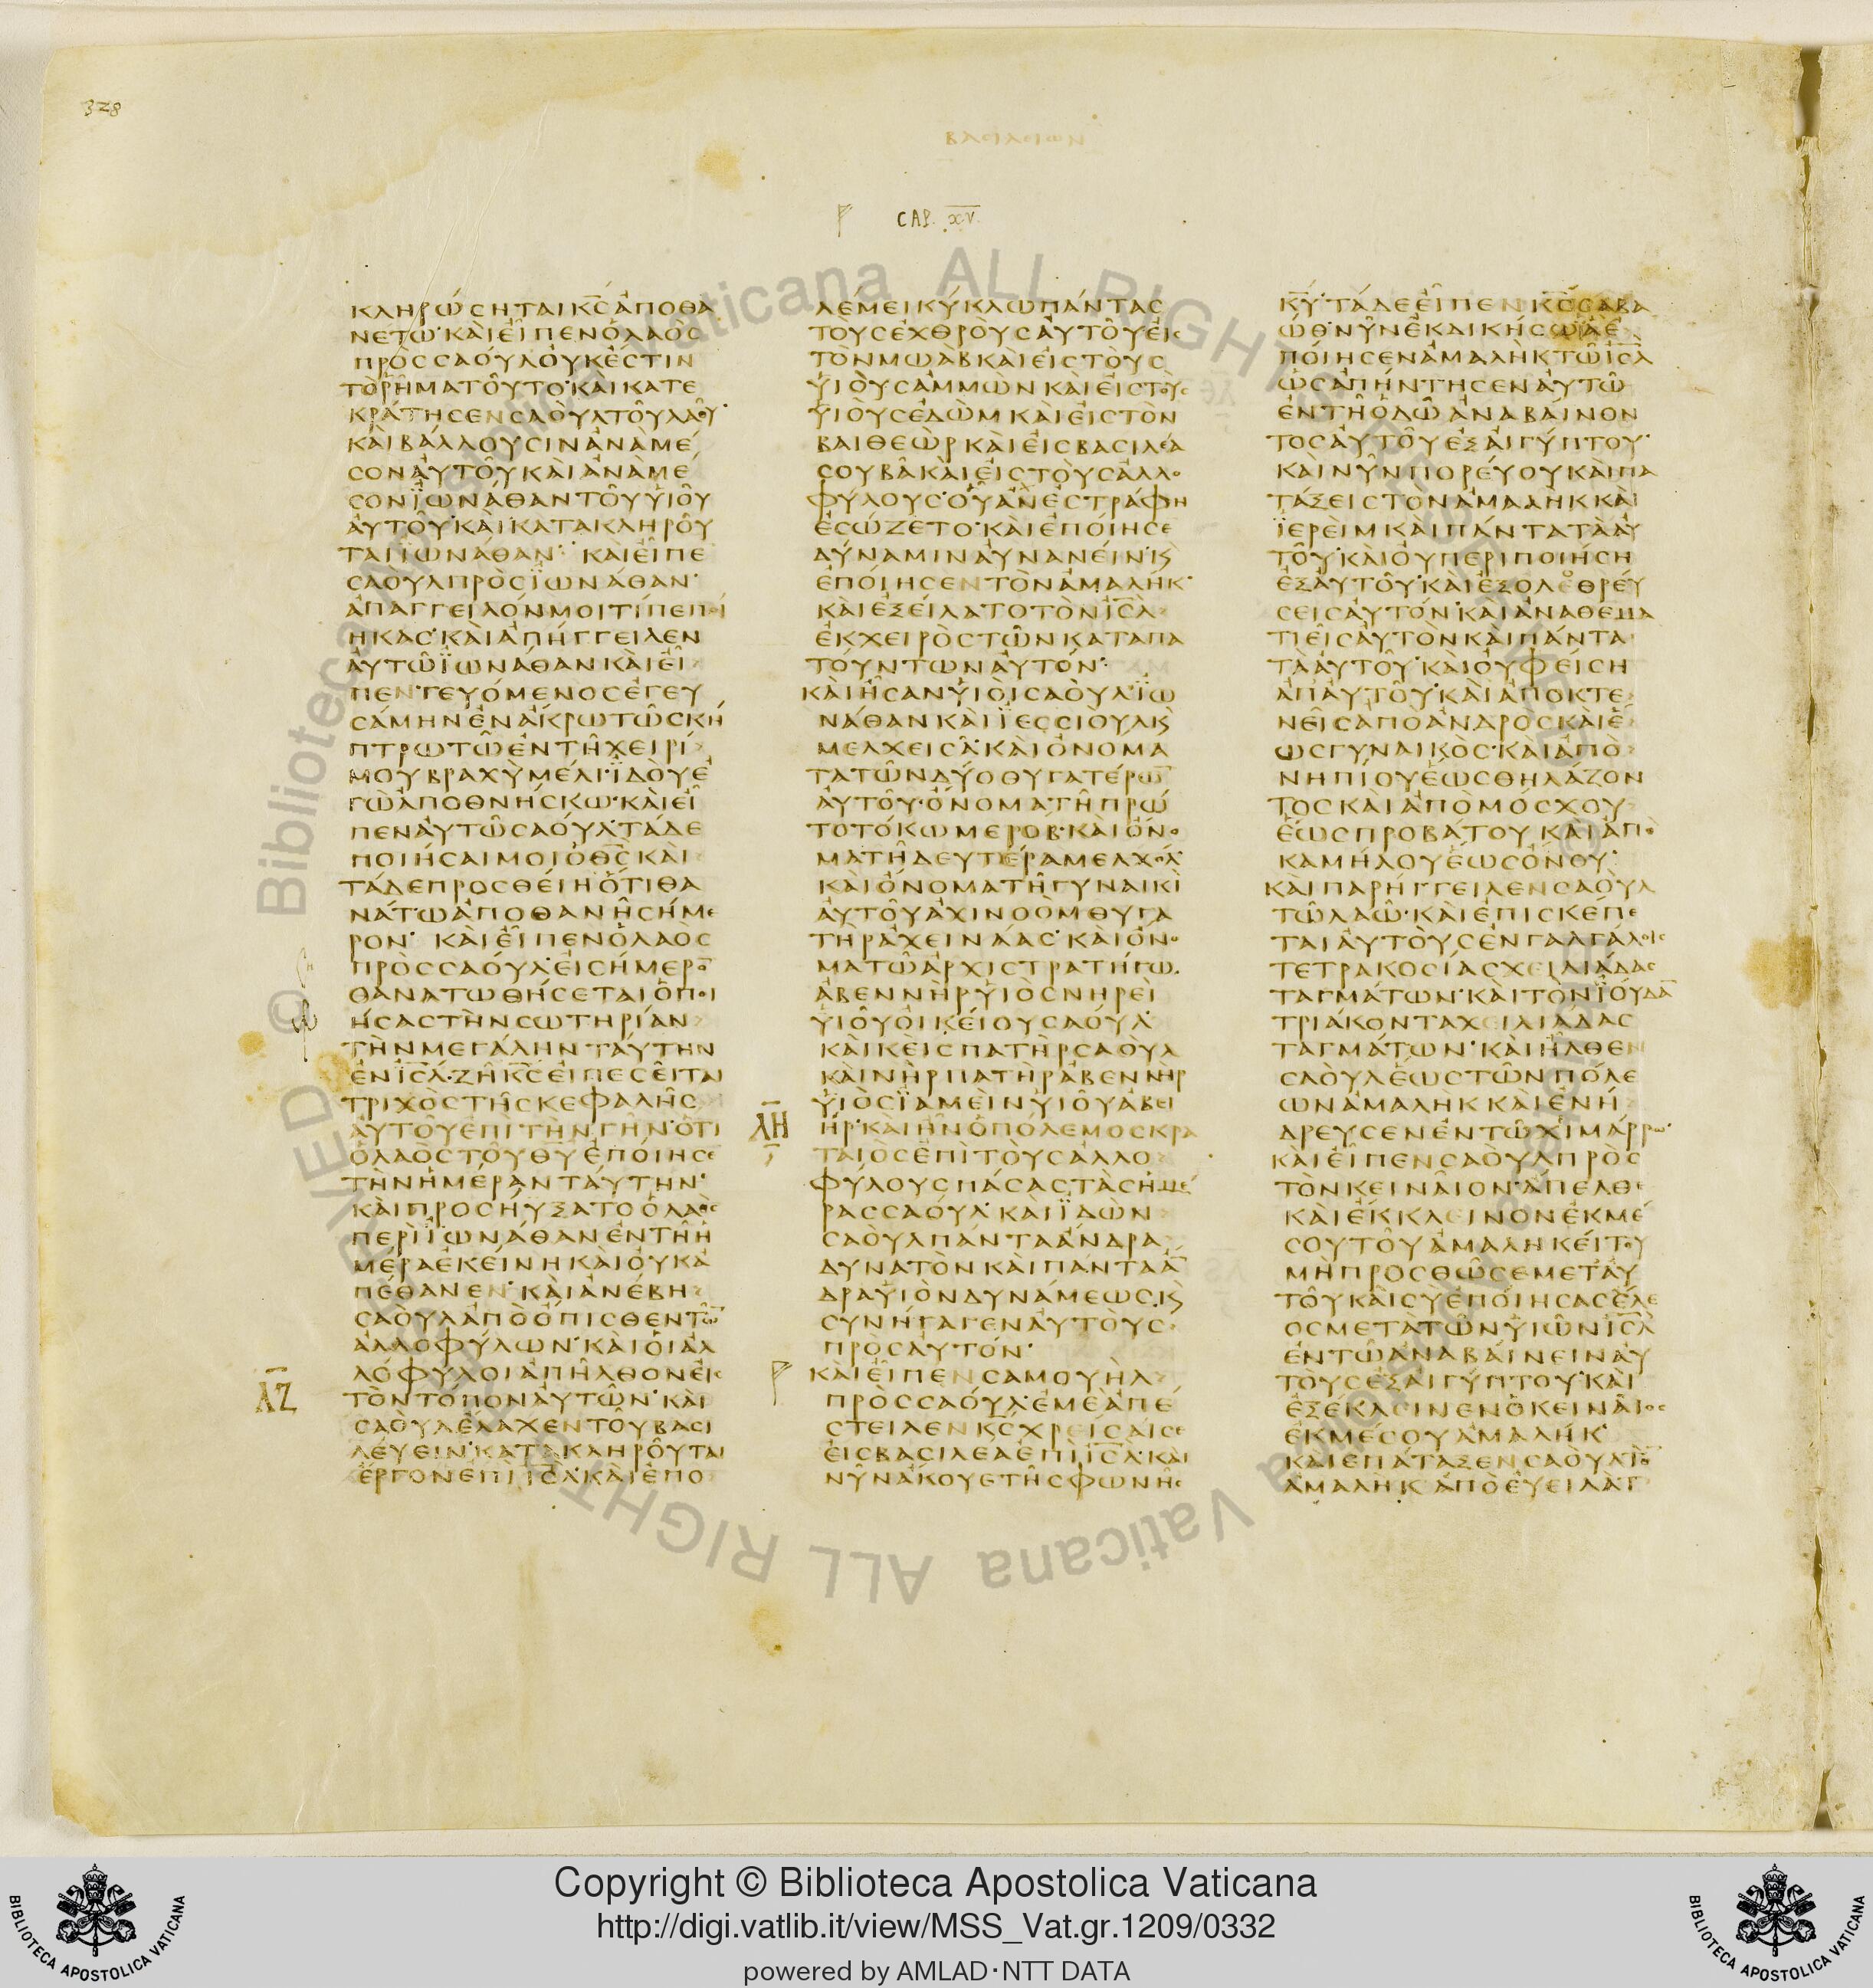 328
ΒΑΣΙΛΕΙΩΝ
CAP. XV.
ΚΛΗΡΩΣΗΤΑΙ Κ̅Σ̅ ΑΠΟΘΑ
ΝΕΤΩ· ΚΑΙ ΕΙΠΕΝ Ο ΛΑΟΣ
ΠΡΟΣ ΣΑΟΥΛ ΟΥΚ ΕΣΤΙΝ
ΤΟ ΡΗΜΑ ΤΟΥΤΟ· ΚΑΙ ΚΑΤΕ
ΚΡΑΤΗΣΕΝ ΣΑΟΥΛ ΤΟΥ ΛΑΟΥ·
ΚΑΙ ΒΑΛΛΟΥΣΙΝ ΑΝΑ ΜΕ
ΣΟΝ ΑΥΤΟΥ ΚΑΙ ΑΝΑ ΜΕ
ΣΟΝ ΪΩΝΑΘΑΝ ΤΟΥ ΥΙΟΥ
ΑΥΤΟΥ· ΚΑΙ ΚΑΤΑΚΛΗΡΟΥ
ΤΑΙ ΪΩΝΑΘΑΝ· ΚΑΙ ΕΙΠΕ
ΣΑΟΥΛ ΠΡΟΣ ΪΩΝΑΘΑΝ·
ΑΠΑΓΓΕΙΛΟΝ ΜΟΙ ΤΙ ΠΕΠΟΙ
ΗΚΑΣ· ΚΑΙ ΑΠΗΓΓΕΙΛΕΝ
ΑΥΤΩ ΪΩΝΑΘΑΝ ΚΑΙ ΕΙ
ΠΕΝ· ΓΕΥΟΜΕΝΟΣ ΕΓΕΥ
ΣΑΜΗΝ ΕΝ ΑΚΡΩ ΤΩ ΣΚΗ
ΠΤΡΩ ΤΩ ΕΝ ΤΗ ΧΕΙΡΙ
ΜΟΥ ΒΡΑΧΥ ΜΕΛΙ· ΪΔΟΥ Ε
ΓΩ ΑΠΟΘΝΗΣΚΩ· ΚΑΙ ΕΙ
ΠΕΝ ΑΥΤΩ ΣΑΟΥΛ· ΤΑΔΕ
ΠΟΙΗΣΑΙ ΜΟΙ Ο Θ̅Σ̅ ΚΑΙ
ΤΑΔΕ ΠΡΟΣΘΕΙΗ ΟΤΙ ΘΑ
ΝΑΤΩ ΑΠΟΘΑΝΗ ΣΗΜΕ
ΡΟΝ· ΚΑΙ ΕΙΠΕΝ Ο ΛΑΟΣ
ΠΡΟΣ ΣΑΟΥΛ· ΕΙ ΣΗΜΕΡΟ̅
ΘΑΝΑΤΩΘΗΣΕΤΑΙ Ο ΠΟΙ
ΗΣΑΣ ΤΗΝ ΣΩΤΗΡΙΑΝ
ΤΗΝ ΜΕΓΑΛΗΝ ΤΑΥΤΗΝ
ΕΝ Ι̅Σ̅Λ̅· ΖΗ Κ̅Σ̅ ΕΙ ΠΕΣΕΙΤΑΙ
ΤΡΙΧΟΣ ΤΗΣ ΚΕΦΑΛΗΣ
ΑΥΤΟΥ ΕΠΙ ΤΗΝ ΓΗΝ· ΟΤΙ
Ο ΛΑΟΣ ΤΟΥ Θ̅Υ̅ ΕΠΟΙΗΣΕ
ΤΗΝ ΗΜΕΡΑΝ ΤΑΥΤΗΝ·
ΚΑΙ ΠΡΟΣΗΥΞΑΤΟ Ο ΛΑΟΣ
ΠΕΡΙ ΪΩΝΑΘΑΝ ΕΝ ΤΗ Η
ΜΕΡΑ ΕΚΕΙΝΗ ΚΑΙ ΟΥΚ Α
ΠΕΘΑΝΕΝ· ΚΑΙ ΑΝΕΒΗ
ΣΑΟΥΛ ΑΠΟ ΟΠΙΣΘΕΝ ΤΩ̅
ΑΛΛΟΦΥΛΩΝ· ΚΑΙ ΟΙ ΑΛ
ΛΟΦΥΛΟΙ ΑΠΗΛΘΟΝ ΕΙΣ
Λ̅Ζ̅ ΤΟΝ ΤΟΠΟΝ ΑΥΤΩΝ· ΚΑΙ
ΣΑΟΥΛ ΕΛΑΧΕΝ ΤΟΥ ΒΑΣΙ
ΛΕΥΕΙΝ· ΚΑΤΑΚΛΗΡΟΥΤΑΙ
ΕΡΓΟΝ ΕΠΙ Ι̅Σ̅Λ̅· ΚΑΙ ΕΠΟ
ΛΕΜΕΙ ΚΥΚΛΩ ΠΑΝΤΑΣ
ΤΟΥΣ ΕΧΘΡΟΥΣ ΑΥΤΟΥ ΕΙΣ
ΤΟΝ ΜΩΑΒ ΚΑΙ ΕΙΣ ΤΟΥΣ
ΥΙΟΥΣ ΑΜΜΩΝ ΚΑΙ ΕΙΣ ΤΟΥΣ
ΥΙΟΥΣ ΕΔΩΜ ΚΑΙ ΕΙΣ ΤΟΝ
ΒΑΙΘΕΩΡ ΚΑΙ ΕΙΣ ΒΑΣΙΛΕΑ
ΣΟΥΒΑ ΚΑΙ ΕΙΣ ΤΟΥΣ ΑΛΛΟ
ΦΥΛΟΥΣ· ΟΥ ΑΝ ΕΣΤΡΑΦΗ
ΕΣΩΖΕΤΟ· ΚΑΙ ΕΠΟΙΗΣΕ
ΔΥΝΑΜΙΝ ΑΥΝΑΝΕΙΝ· Κ̀
ΕΠΟΙΗΣΕΝ ΤΟΝ ΑΜΑΛΗΚ·
ΚΑΙ ΕΞΕΙΛΑΤΟ ΤΟΝ Ι̅Σ̅Λ̅
ΕΚ ΧΕΙΡΟΣ ΤΩΝ ΚΑΤΑΠΑ
ΤΟΥΝΤΩΝ ΑΥΤΟΝ·
ΚΑΙ ΗΣΑΝ ΥΙΟΙ ΣΑΟΥΛ· ΪΩ
ΝΑΘΑΝ ΚΑΙ ΪΕΣΣΙΟΥΛ Κ̀
ΜΕΛΧΕΙΣΑ· ΚΑΙ ΟΝΟΜΑ
ΤΑ ΤΩΝ ΔΥΟ ΘΥΓΑΤΕΡΩ̅
ΑΥΤΟΥ· ΟΝΟΜΑ ΤΗ ΠΡΩ
ΤΟΤΟΚΩ ΜΕΡΟΒ· ΚΑΙ ΟΝΟ
ΜΑ ΤΗ ΔΕΥΤΕΡΑ ΜΕΛΧΟΛ·
ΚΑΙ ΟΝΟΜΑ ΤΗ ΓΥΝΑΙΚΙ
ΑΥΤΟΥ ΑΧΙΝΟΟΜ ΘΥΓΑ
ΤΗΡ ΑΧΕΙΝΑΑΣ· ΚΑΙ ΟΝΟ
ΜΑ ΤΩ ΑΡΧΙΣΤΡΑΤΗΓΩ
ΑΒΕΝΝΗΡ ΥΙΟΣ ΝΗΡΕΙ
ΥΙΟΥ ΟΙΚΕΙΟΥ ΣΑΟΥΛ·
ΚΑΙ ΚΕΙΣ ΠΑΤΗΡ ΣΑΟΥΛ
ΚΑΙ ΝΗΡ ΠΑΤΗΡ ΑΒΕΝΝΗΡ
ΥΙΟΣ ΪΑΜΕΙΝ ΥΙΟΥ ΑΒΕΙ
Λ̅Η̅ ΗΡ· ΚΑΙ ΗΝ Ο ΠΟΛΕΜΟΣ ΚΡΑ
ΤΑΙΟΣ ΕΠΙ ΤΟΥΣ ΑΛΛΟ
ΦΥΛΟΥΣ ΠΑΣΑΣ ΤΑΣ ΗΜΕ
ΡΑΣ ΣΑΟΥΛ· ΚΑΙ ΪΔΩΝ
ΣΑΟΥΛ ΠΑΝΤΑ ΑΝΔΡΑ
ΔΥΝΑΤΟΝ ΚΑΙ ΠΑΝΤΑ Α̅
ΔΡΑ ΥΙΟΝ ΔΥΝΑΜΕΩΣ Κ̀
ΣΥΝΗΓΑΓΕΝ ΑΥΤΟΥΣ
ΠΡΟΣ ΑΥΤΟΝ·
ΚΑΙ ΕΙΠΕΝ ΣΑΜΟΥΗΛ
ΠΡΟΣ ΣΑΟΥΛ· ΕΜΕ ΑΠΕ
ΣΤΕΙΛΕΝ Κ̅Σ̅ ΧΡΕΙΣΑΙ ΣΕ
ΕΙΣ ΒΑΣΙΛΕΑ ΕΠΙ Ι̅Σ̅Λ̅· ΚΑΙ
ΝΥΝ ΑΚΟΥΕ ΤΗΣ ΦΩΝΗΣ
Κ̅Υ̅· ΤΑΔΕ ΕΙΠΕΝ Κ̅Σ̅ ΣΑΒΑ
ΩΘ· ΝΥΝ ΕΚΔΙΚΗΣΩ Α Ε
ΠΟΙΗΣΕΝ ΑΜΑΛΗΚ ΤΩ Ι̅Σ̅Λ̅
ΩΣ ΑΠΗΝΤΗΣΕΝ ΑΥΤΩ
ΕΝ ΤΗ ΟΔΩ ΑΝΑΒΑΙΝΟΝ
ΤΟΣ ΑΥΤΟΥ ΕΞ ΑΙΓΥΠΤΟΥ·
ΚΑΙ ΝΥΝ ΠΟΡΕΥΟΥ ΚΑΙ ΠΑ
ΤΑΞΕΙΣ ΤΟΝ ΑΜΑΛΗΚ ΚΑΙ
ΪΕΡΕΙΜ ΚΑΙ ΠΑΝΤΑ ΤΑ ΑΥ
ΤΟΥ· ΚΑΙ ΟΥ ΠΕΡΙΠΟΙΗΣΗ
ΕΞ ΑΥΤΟΥ· ΚΑΙ ΕΞΟΛΕΘΡΕΥ
ΣΕΙΣ ΑΥΤΟΝ· ΚΑΙ ΑΝΑΘΕΜΑ
ΤΙΕΙΣ ΑΥΤΟΝ ΚΑΙ ΠΑΝΤΑ
ΤΑ ΑΥΤΟΥ· ΚΑΙ ΟΥ ΦΕΙΣΗ
ΑΠ ΑΥΤΟΥ· ΚΑΙ ΑΠΟΚΤΕ
ΝΕΙΣ ΑΠΟ ΑΝΔΡΟΣ ΚΑΙ Ε
ΩΣ ΓΥΝΑΙΚΟΣ· ΚΑΙ ΑΠΟ
ΝΗΠΙΟΥ ΕΩΣ ΘΗΛΑΖΟΝ
ΤΟΣ ΚΑΙ ΑΠΟ ΜΟΣΧΟΥ
ΕΩΣ ΠΡΟΒΑΤΟΥ ΚΑΙ ΑΠΟ
ΚΑΜΗΛΟΥ ΕΩΣ ΟΝΟΥ·
ΚΑΙ ΠΑΡΗΓΓΕΙΛΕΝ ΣΑΟΥΛ
ΤΩ ΛΑΩ· ΚΑΙ ΕΠΙΣΚΕΠΤΕ
ΤΑΙ ΑΥΤΟΥΣ ΕΝ ΓΑΛΓΑΛΟΙΣ
ΤΕΤΡΑΚΟΣΙΑΣ ΧΕΙΛΙΑΔΑΣ
ΤΑΓΜΑΤΩΝ· ΚΑΙ ΤΟΝ ΪΟΥΔΑ̅
ΤΡΙΑΚΟΝΤΑ ΧΕΙΛΙΑΔΑΣ
ΤΑΓΜΑΤΩΝ· ΚΑΙ ΗΛΘΕΝ
ΣΑΟΥΛ ΕΩΣ ΤΩΝ ΠΟΛΕ
ΩΝ ΑΜΑΛΗΚ ΚΑΙ ΕΝΗ
ΔΡΕΥΣΕΝ ΕΝ ΤΩ ΧΙΜΑΡΡΩ·
ΚΑΙ ΕΙΠΕΝ ΣΑΟΥΛ ΠΡΟΣ
ΤΟΝ ΚΕΙΝΑΙΟΝ· ΑΠΕΛΘΕ
ΚΑΙ ΕΚΚΛΕΙΝΟΝ ΕΚ ΜΕ
ΣΟΥ ΤΟΥ ΑΜΑΛΗΚΕΙΤΟΥ
ΜΗ ΠΡΟΣΘΩ ΣΕ ΜΕΤ ΑΥ
ΤΟΥ ΚΑΙ ΣΥ ΕΠΟΙΗΣΑΣ ΕΛΕ
ΟΣ ΜΕΤΑ ΤΩΝ ΥΙΩΝ Ι̅Σ̅Λ̅
ΕΝ ΤΩ ΑΝΑΒΑΙΝΕΙΝ ΑΥ
ΤΟΥΣ ΕΞ ΑΙΓΥΠΤΟΥ· ΚΑΙ
ΕΞΕΚΛΕΙΝΕΝ Ο ΚΕΙΝΑΙΟΣ
ΕΚ ΜΕΣΟΥ ΑΜΑΛΗΚ·
ΚΑΙ ΕΠΑΤΑΞΕΝ ΣΑΟΥΛ ΤΟ̅
ΑΜΑΛΗΚ ΑΠΟ ΕΥΕΙΛΑΤ
Copyright © Biblioteca Apostolica Vaticana
http://digi.vatlib.it/view/MSS_Vat.gr.1209/0332
powered by AMLAD·NTT DATA
BIBLIOTECA APOSTOLICA VATICANA
BIBLIOTECA APOSTOLICA VATICANA
© Biblioteca Apostolica Vaticana ALL RIGHTS RESERVED
© Biblioteca Apostolica Vaticana ALL RIGHTS RESERVED